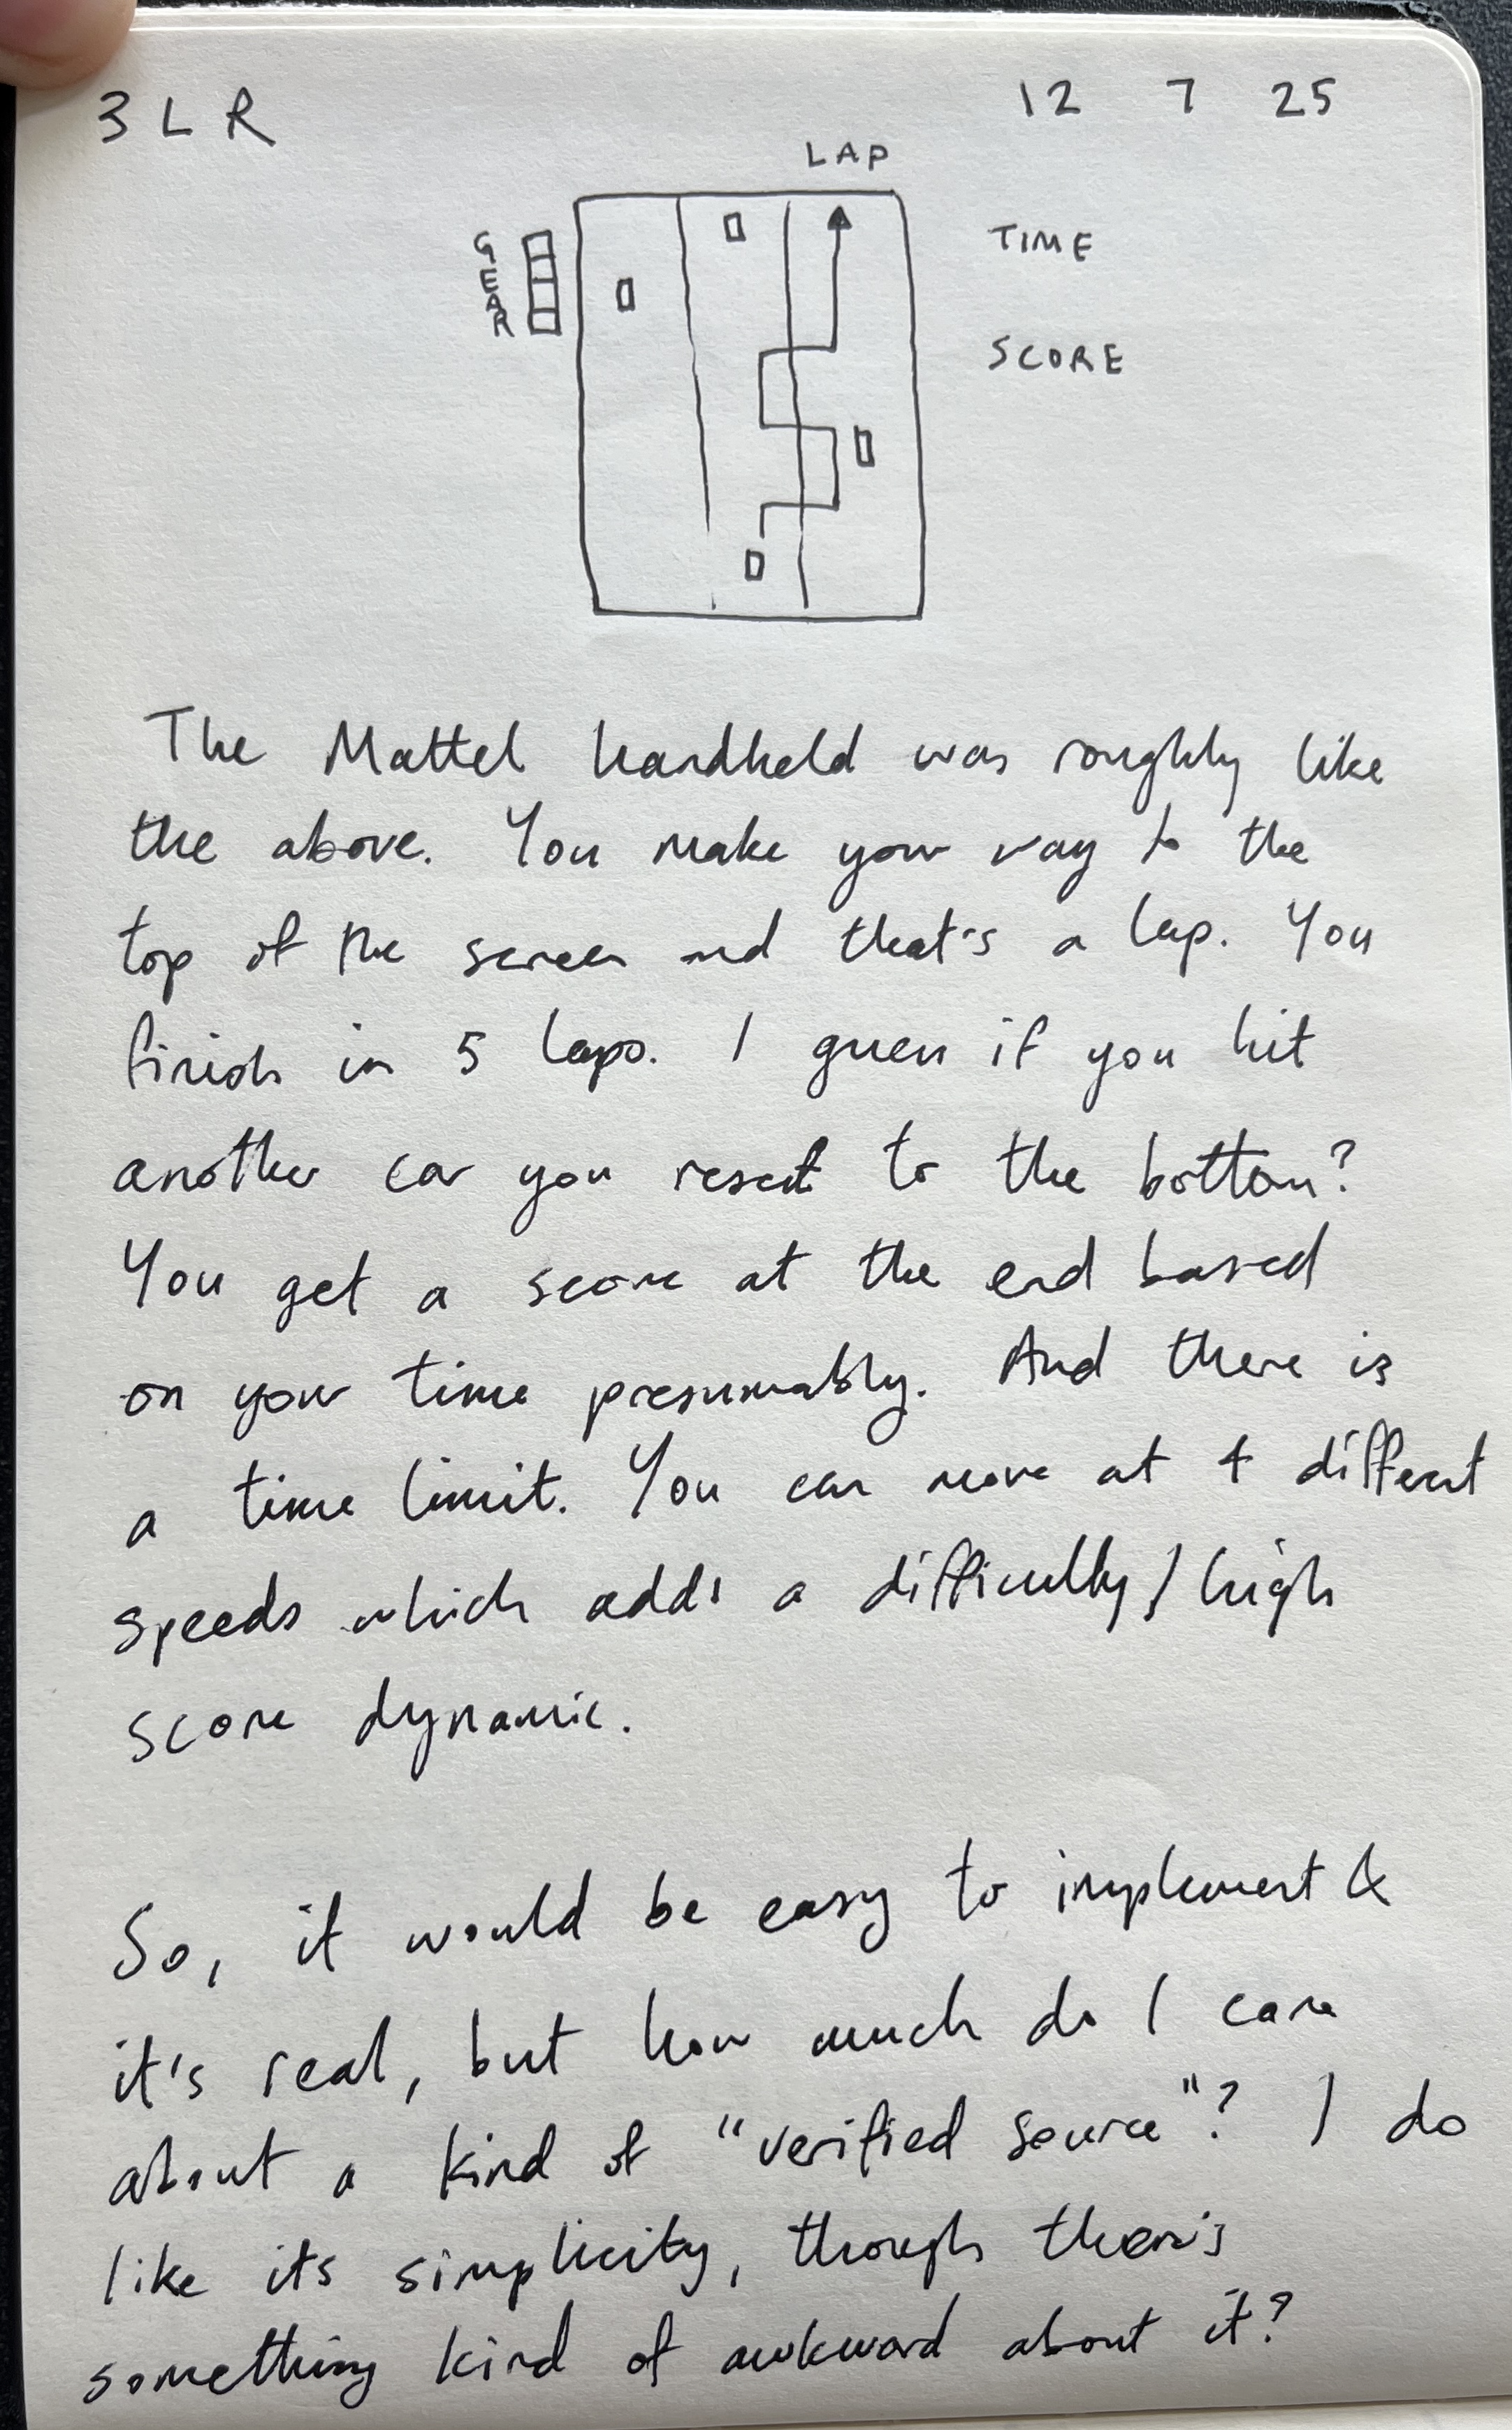 3 L R 12 7 25
LAP
GEAR
TIME
SCORE
The Mattel handheld was roughly like
the above. You make your way to the
top of the screen and that's a lap. You
finish in 5 laps. I guess if you hit
another car you reset to the bottom?
You get a score at the end based
on your time presumably. And there is
a time limit. You can move at 4 different
speeds which adds a difficulty/high
score dynamic.
So, it would be easy to implement &
it's real, but how much do I care
about a kind of "verified source"? I do
like its simplicity, though there's
something kind of awkward about it?